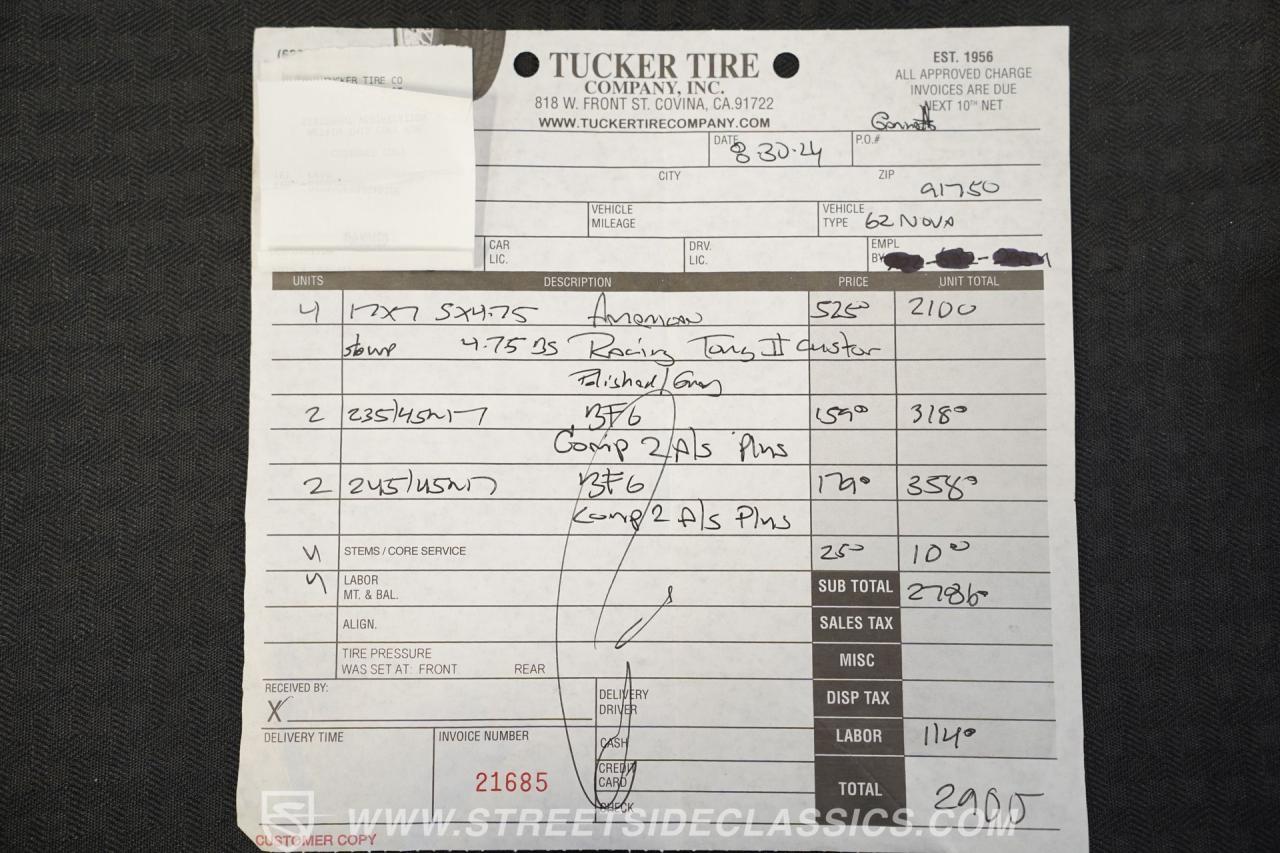 TUCKER TIRE
COMPANY, INC.
818 W. FRONT ST. COVINA, CA.91722
WWW.TUCKERTIRECOMPANY.COM
EST. 1956
ALL APPROVED CHARGE
INVOICES ARE DUE
NEXT 10TH NET
TIRE CO
DATE 8-30-24 P.O.#
CITY ZIP 91750
VEHICLE MILEAGE
VEHICLE TYPE 62 NOVA
CAR LIC.
DRV. LIC.
EMPL BY
UNITS DESCRIPTION PRICE UNIT TOTAL
4 17x7 5x4.75 American 525⁰ 2100
4.75 BS Racing Torq II Custom
Polished/Gray
2 235/45R17 BFG 159⁰ 318⁰
Comp 2 A/s Plus
2 245/45R17 BFG 179⁰ 358⁰
Comp 2 A/s Plus
4 STEMS / CORE SERVICE 25⁰ 10⁰⁰
4 LABOR MT. & BAL. SUB TOTAL 2786⁰
ALIGN. SALES TAX
TIRE PRESSURE
WAS SET AT: FRONT REAR MISC
RECEIVED BY:
X
DELIVERY DRIVER
DISP TAX
DELIVERY TIME
INVOICE NUMBER
21685
CASH
CREDIT CARD
CHECK
LABOR 114⁰
TOTAL 2900
WWW.STREETSIDECLASSICS.COM
CUSTOMER COPY